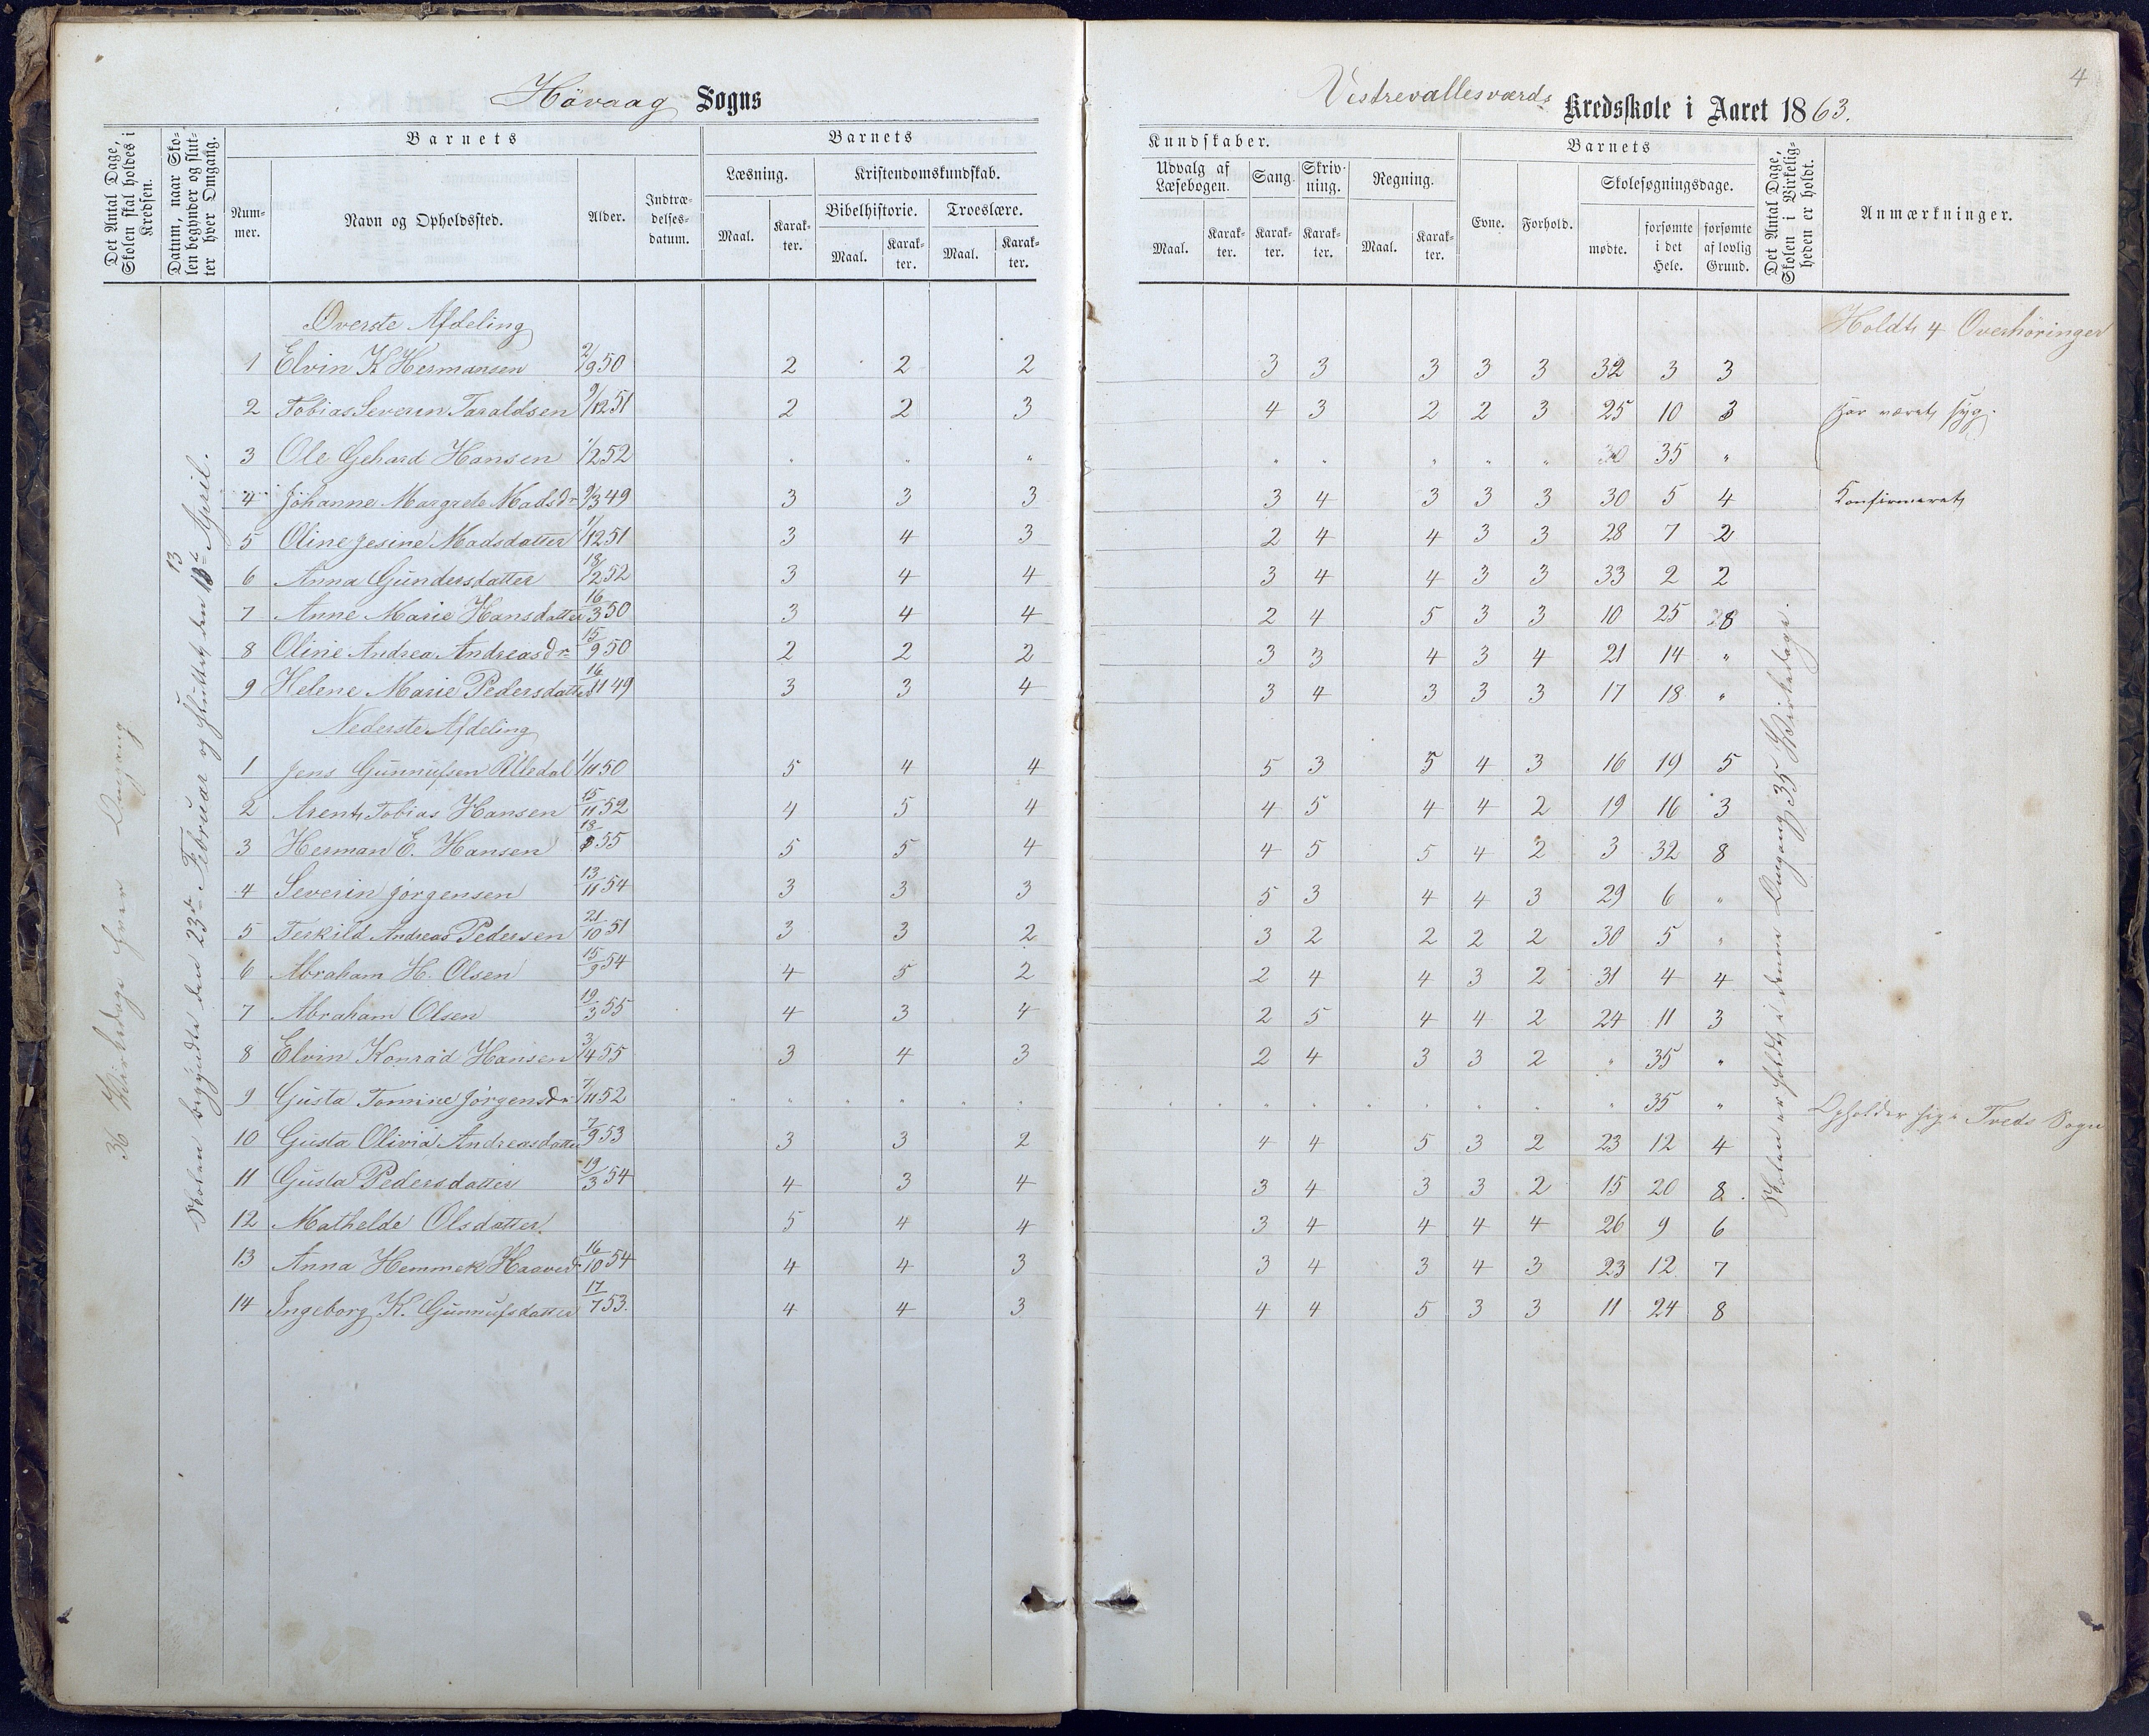 Høvaag Sogns
Vestrevallesværds Kredsskole i Aaret 1863.
4
Det Antal Dage, Skolen skal holdes i Kredsen.
Datum, naar Skolen begynder og slutter hver Omgang.
Barnets
Nummer.
Navn og Opholdssted.
Alder.
Indtrædelsesdatum.
Barnets
Læsning.
Maal.
Karakter.
Kristendomskundskab.
Bibelhistorie.
Maal.
Karakter.
Troeslære.
Maal.
Karakter.
Kundskaber.
Udvalg af Læsebogen.
Maal.
Karakter.
Sang.
Karakter.
Skrivning.
Karakter.
Regning.
Maal.
Karakter.
Barnets
Evne.
Forhold.
Skolesøgningsdage.
mødte.
forsømte i det Hele.
forsømte af lovlig Grund.
Det Antal Dage, Skolen i Virkeligheden er holdt.
Anmærkninger.
36 Virkedage hver Omgang
Skolen begyndte den 23de Februar og sluttet den 13de April.
Skolen er holdt i denne Omgang 35 Virkedage.
Øverste Afdeling
Holdt 4 Overhøringer
1 Elvin K Hermansen 2/9 50 2 2 2 3 3 3 3 3 32 3 3
2 Tobias Severin Taraldsen 9/12 51 2 2 3 4 3 2 2 3 25 10 3 har været syg.
3 Ole Gehard Hansen 1/2 52 " " " " " " " " 35 "
4 Johanne Margrete Madsdr 9/3 49 3 3 3 3 4 3 3 3 30 5 4 Konfirmeret
5 Oline Jesine Madsdatter 1/12 51 3 4 3 2 4 4 3 3 28 7 2
6 Anna Gundersdatter 18/2 52 3 4 4 3 4 4 3 3 33 2 2
7 Anne Marie Hansdatter 16/3 50 3 4 4 2 4 5 3 3 10 25 8
8 Oline Andrea Andreasdr 15/9 50 2 2 2 3 3 4 3 4 21 14 "
9 Helene Marie Pedersdatter 16/11 49 3 3 4 3 4 3 3 3 17 18 "
Nederste Afdeling
1 Jens Gunnufsen 1/11 50 5 4 4 5 3 5 4 3 16 19 5
2 Arent Tobias Hansen 15/11 52 4 5 4 4 5 4 4 2 19 16 3
3 Herman E. Hansen 18/ 55 5 5 4 4 5 5 4 2 3 32 8
4 Severin Jørgensen 13/11 54 3 3 3 5 3 4 4 3 29 6 "
5 Terkild Andreas Pedersen 21/10 51 3 3 2 3 2 2 2 2 30 5 "
6 Abraham H. Olsen 15/9 54 4 5 2 2 4 4 3 2 31 4 4
7 Abraham Olsen 19/3 55 4 3 4 2 5 4 4 2 24 11 3
8 Elvin Konrad Hansen 3/4 55 3 4 3 2 4 3 3 2 " 35 "
9 Gusta Tomine Jørgensdr 7/11 52 " " " " " " " " " " " " " " 35 " Opholder sig i Tveds Sogn
10 Gusta Olivia Andreasdatter 7/9 53 3 3 2 4 4 5 3 2 23 12 4
11 Gusta Pedersdatter 19/3 54 4 3 4 3 4 3 3 2 15 20 8
12 Mathelde Olsdatter 5 4 4 3 4 4 4 4 26 9 6
13 Anna Hemmek 16/10 54 4 4 3 3 4 3 4 3 23 12 7
14 Ingeborg K. Gunnufsdatter 17/7 53. 4 4 3 4 4 5 3 3 11 24 8